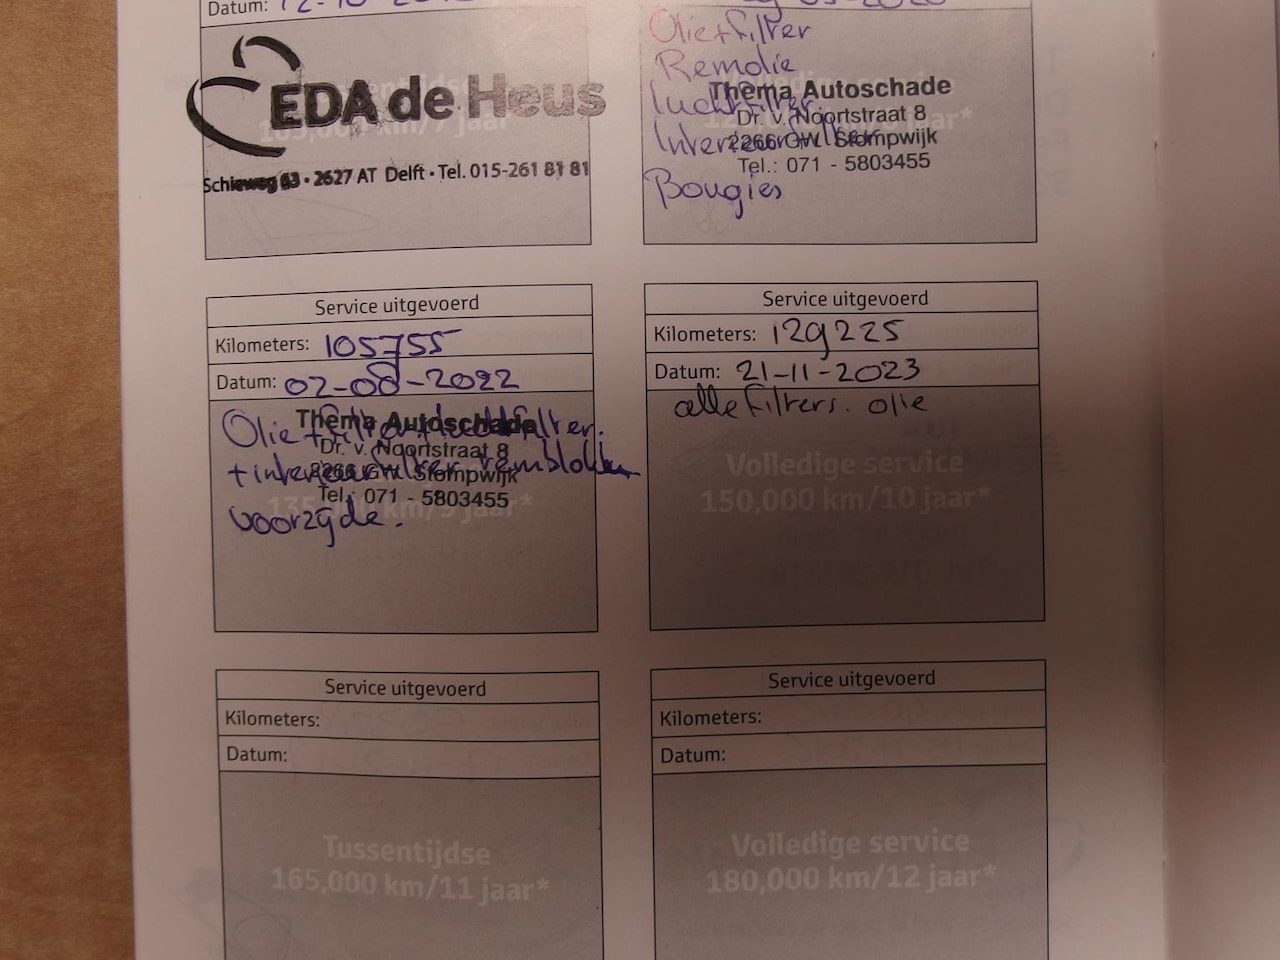 Datum: 12-10-201
EDA de Heus
Schieweg 63 • 2627 AT Delft • Tel. 015-261 81 81
Olie+filter
Remolie
luchtfilter
Interieurfilter
Bougies
Thema Autoschade
Dr. v. Noortstraat 8
2266 GW Stompwijk
Tel.: 071 - 5803455
Service uitgevoerd
Kilometers: 105755
Datum: 02-08-2022
Olie+filter+luchtfilter.
+interieurfilter remblokken
voorzijde.
Thema Autoschade
Dr. v. Noortstraat 8
2266 GW Stompwijk
Tel.: 071 - 5803455
135,000 km/9 jaar*
Service uitgevoerd
Kilometers: 129225
Datum: 21-11-2023
alle filters. olie
Volledige service
150,000 km/10 jaar*
Service uitgevoerd
Kilometers:
Datum:
Tussentijdse
165,000 km/11 jaar*
Service uitgevoerd
Kilometers:
Datum:
Volledige service
180,000 km/12 jaar*